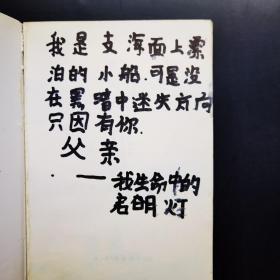 我是支海面上漂
泊的小船.可是没
在黑暗中迷失方向
只因有你.
父亲
.——我生命中的
启明灯